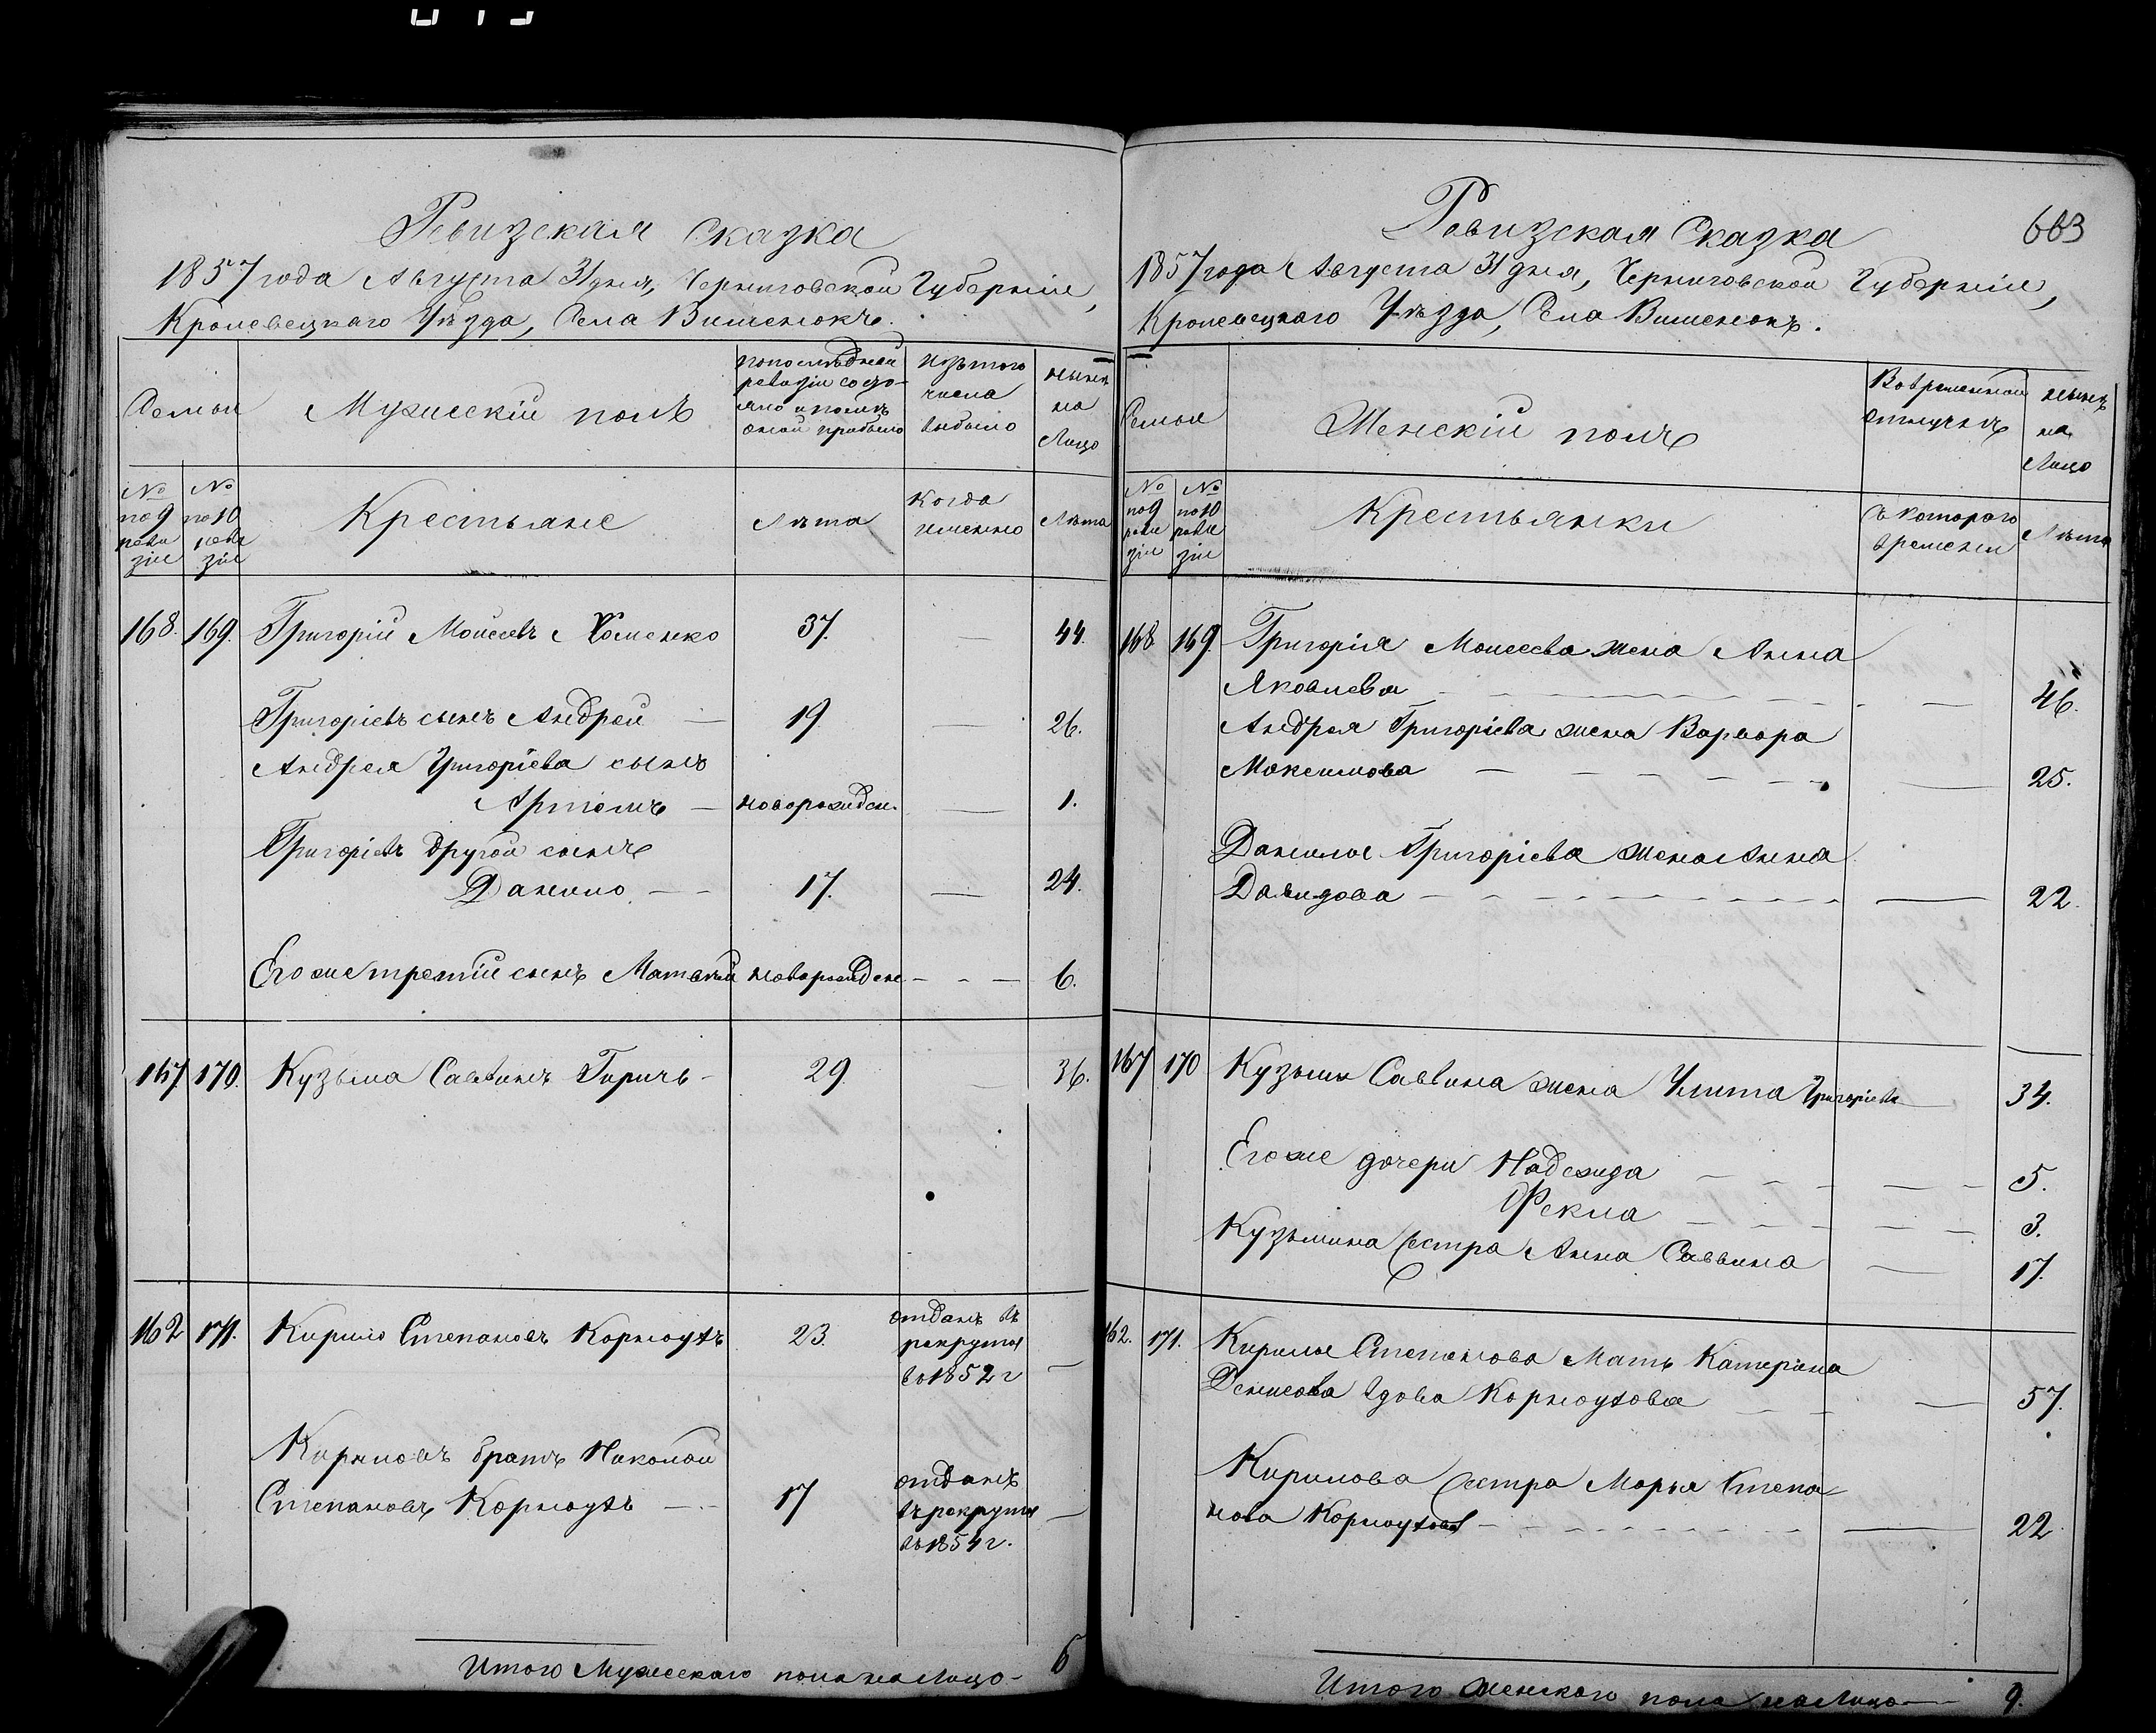 Ревизская Сказка
1857 года Августа 31 дня, Черниговской Губерніи,
Кролевецкаго Уѣзда, Села Вишенокъ.
Семьи
Мужескій полъ
по последней
ревизіи состо-
яло и послѣ
оной прибыло
Изъ того
числа
выбыло
нынѣ
на
Лицо
№
по 9
реви
зіи
№
по 10
реви
зіи
Крестьяне
Лѣта
Когда
именно
Лѣта
168. 169. Григорій Моисеевъ Хоменко 37. — 44.
Григоріевъ сынъ Андрей — 19. — 26.
Андрея Григоріева сынъ
Артемъ — новорожден. — 1.
Григоріевъ другой сынъ
Данило — — 17. — 24.
Его же третій сынъ Матвей новорожден. — — — 6.
167 170. Кузьма Саввинъ Гиричъ - 29. — 36.
162 171. Кирило Степановъ Корноухъ 23. отданъ въ
рекруты
въ 1852 г —
Кириловъ братъ Николай
Степановъ Корноухъ — 17 отданъ
въ рекруты
въ 1854 г. —
Итого Мужескаго пола на Лицо - 6
663
Ревизская Сказка
1857 года Августа 31 дня, Черниговской Губерніи,
Кролевецкаго Уѣзда, Села Вишенокъ.
Семьи
Женскій полъ
Во временной
отлучкѣ
нынѣ
на
Лицо
№
по 9
реви
зіи
№
по 10
реви
зіи
Крестьянки
съ котораго
времени
Лѣта
168 169. Григорія Моисеева жена Анна
Яковлева — — 46.
Андрея Григоріева жена Варвара
Максимова — — 25.
Данилы Григоріева жена Анна
Давидова — — 22.
167 170 Кузьмы Саввина жена Улита Григоріева — 34.
Его же дочери Надежда — — 5.
Фекла — — 3.
Кузьмина сестра Анна Саввина — 17.
162. 171. Кирилы Степанова Мать Катерина
Денисова вдова Корноухова — — 57.
Кирилова сестра Марья Степа
нова Корноухова — — 22
Итого Женскаго пола на Лицо — 9.